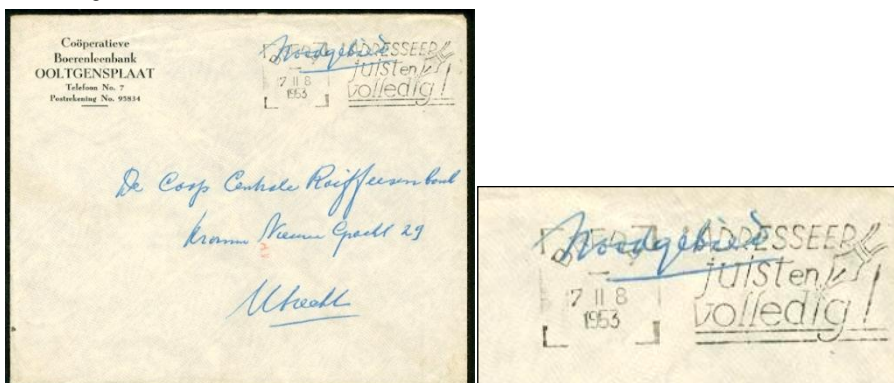 Coöperatieve
Boerenleenbank
OOLTGENSPLAAT
Telefoon No. 7
Postrekening No. 95834
Noodgebied
ADRESSEER
juist en
volledig!
7 II 8
1953
De Coop Centrale Raiffeisenbank
Kromme Nieuwe Gracht 29
2
Utrecht
Noodgebied
ADRESSEER
juist en
volledig!
7 II 8
1953